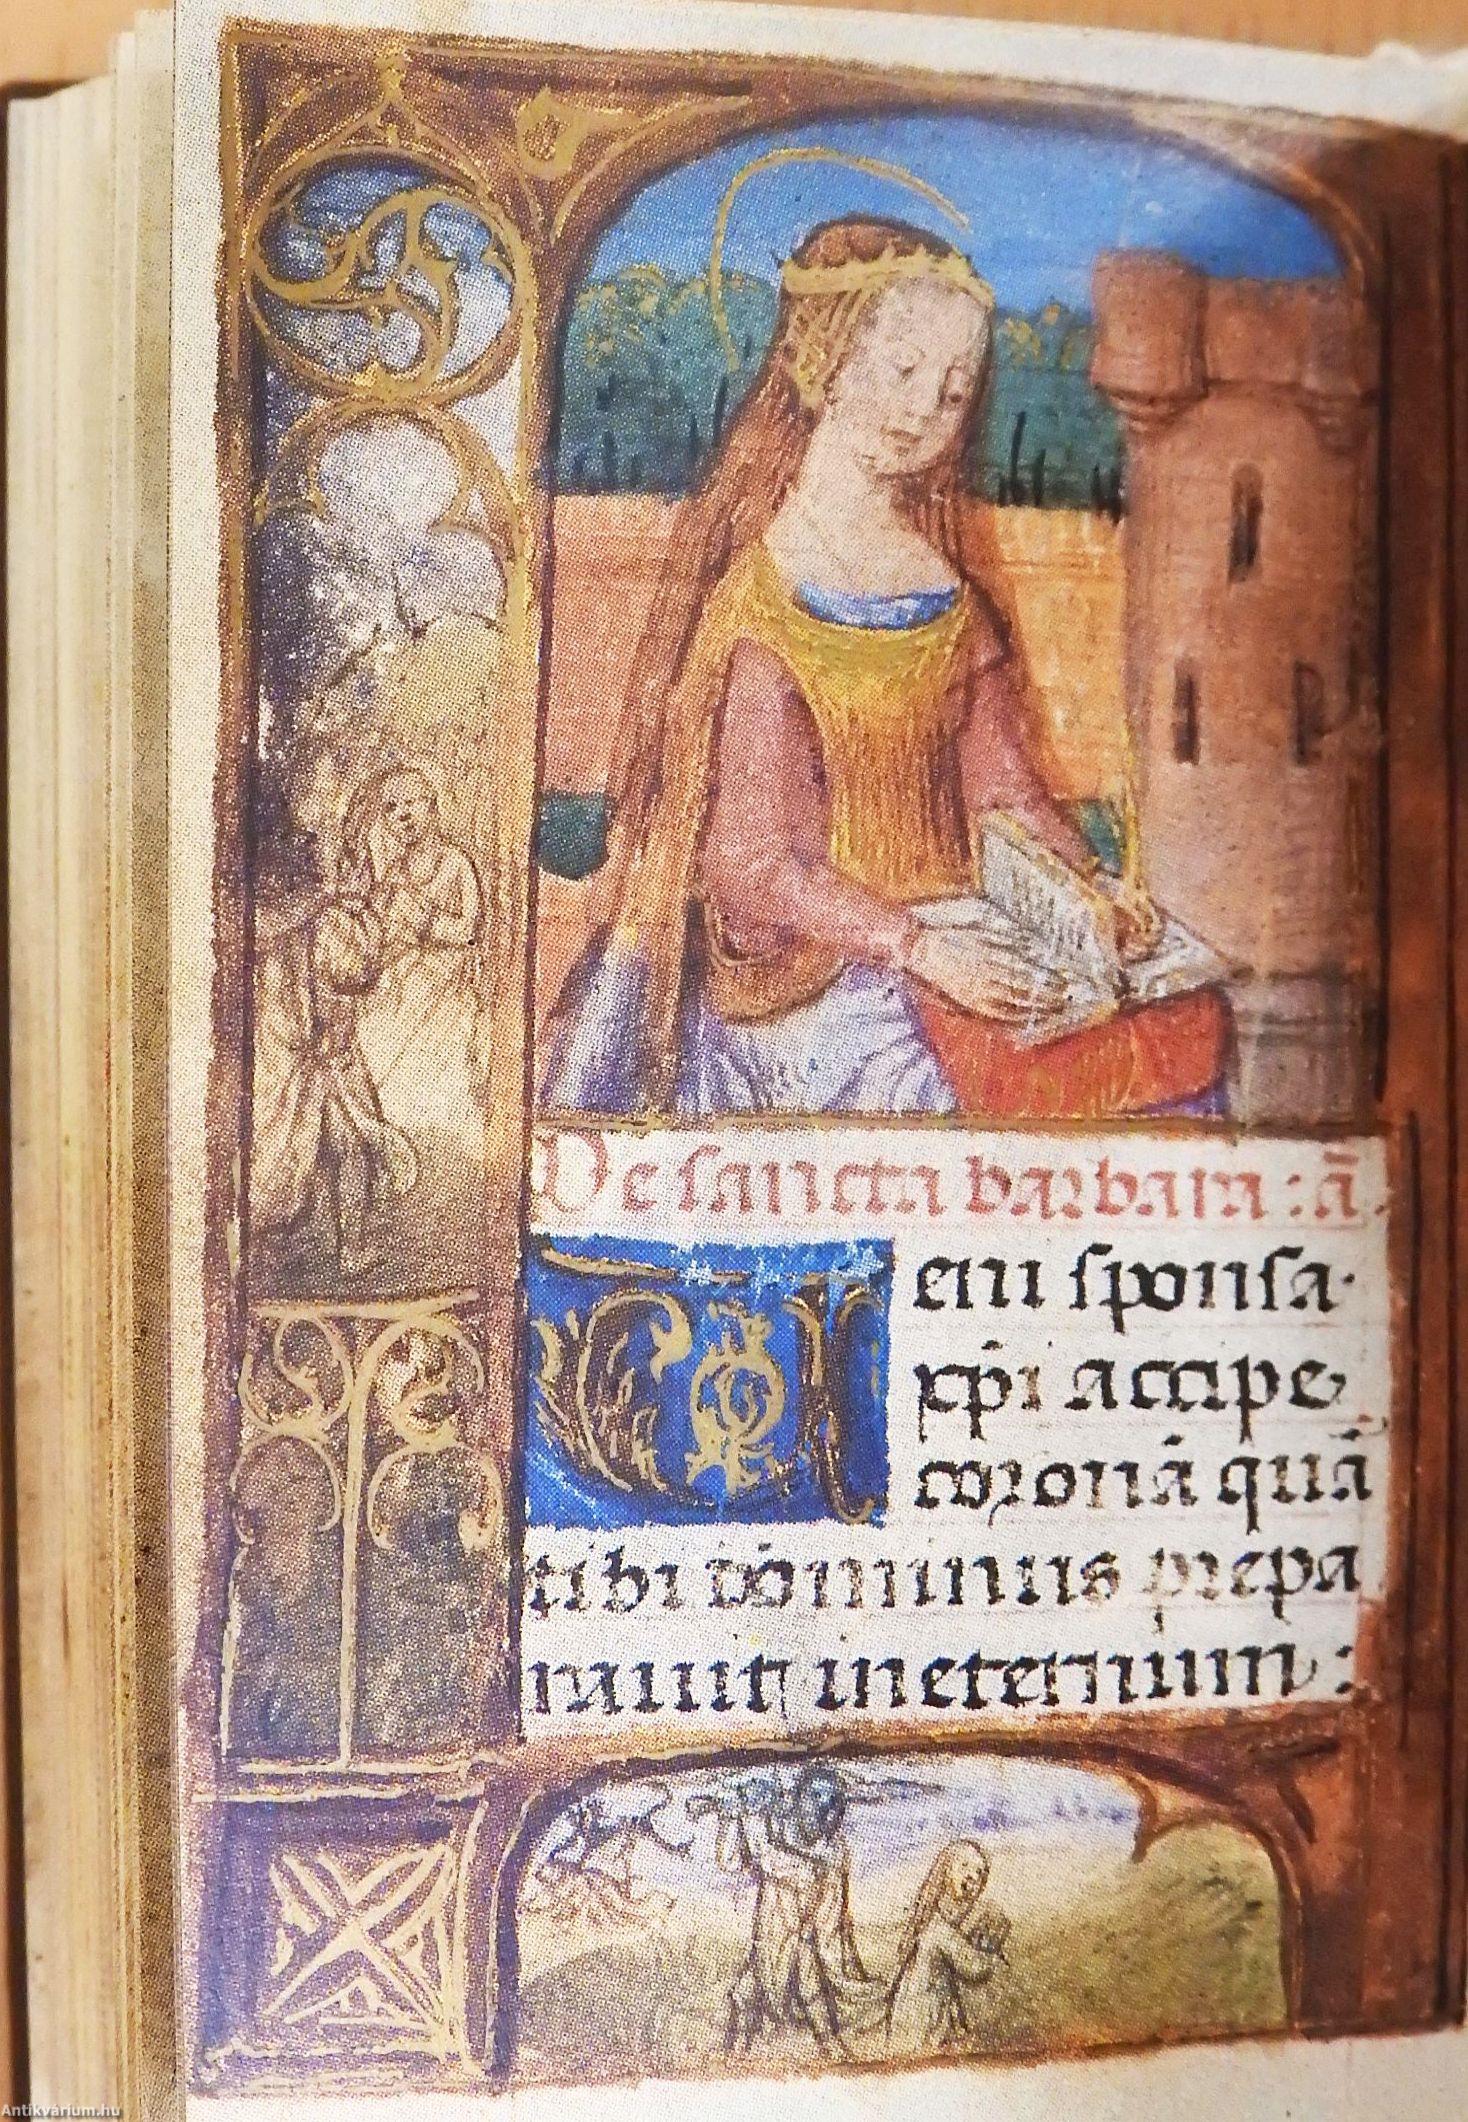 De sancta barbara : ā.
Ueni sponsa.
xp̄i accipe
coronā quā
tibi dominus prepa
rauit in eternum :
Antikvárium.hu